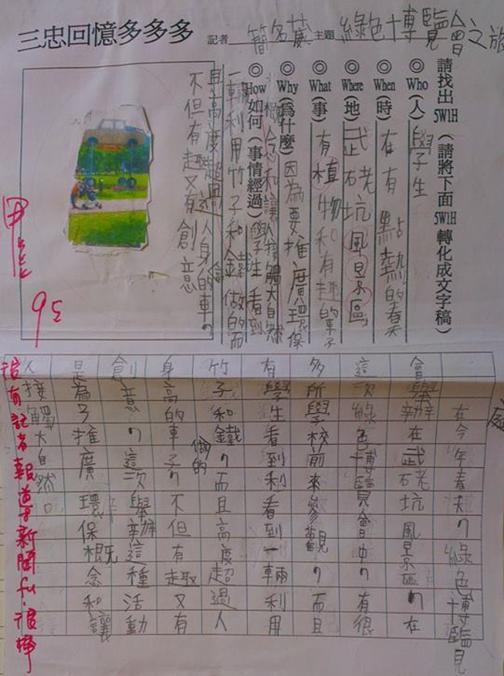 三忠回憶多多多
記者
主題 綠色博覽會之旅
請找出5W1H(請將下面5W1H轉化成文字稿)
◎Who(人)學生
◎When(時)在有點熱的春天
◎Where(地)武荖坑風景區
◎What(事)有植物和有趣的車子
◎Why(為什麼)因為要推廣環保
概念和讓人接觸大自然
◎How如何(事情經過)學生看到
一輛利用竹子和鐵做的而
且高度超過人身的車,
不但有趣又有創意
95
在今年春天,綠色博覽
會舉辦在武荖坑風景區,在
這次綠色博覽會中,有很
多所學校前來參觀,而且
有學生看到利看到一輛利用
竹子和鐵做的,而且高度超過人
身高的車子,不但有趣又有
創意,這次舉辦這種活動
是為了推廣環保概念和讓
人接觸大自然。
有記者報導新聞fu,很棒